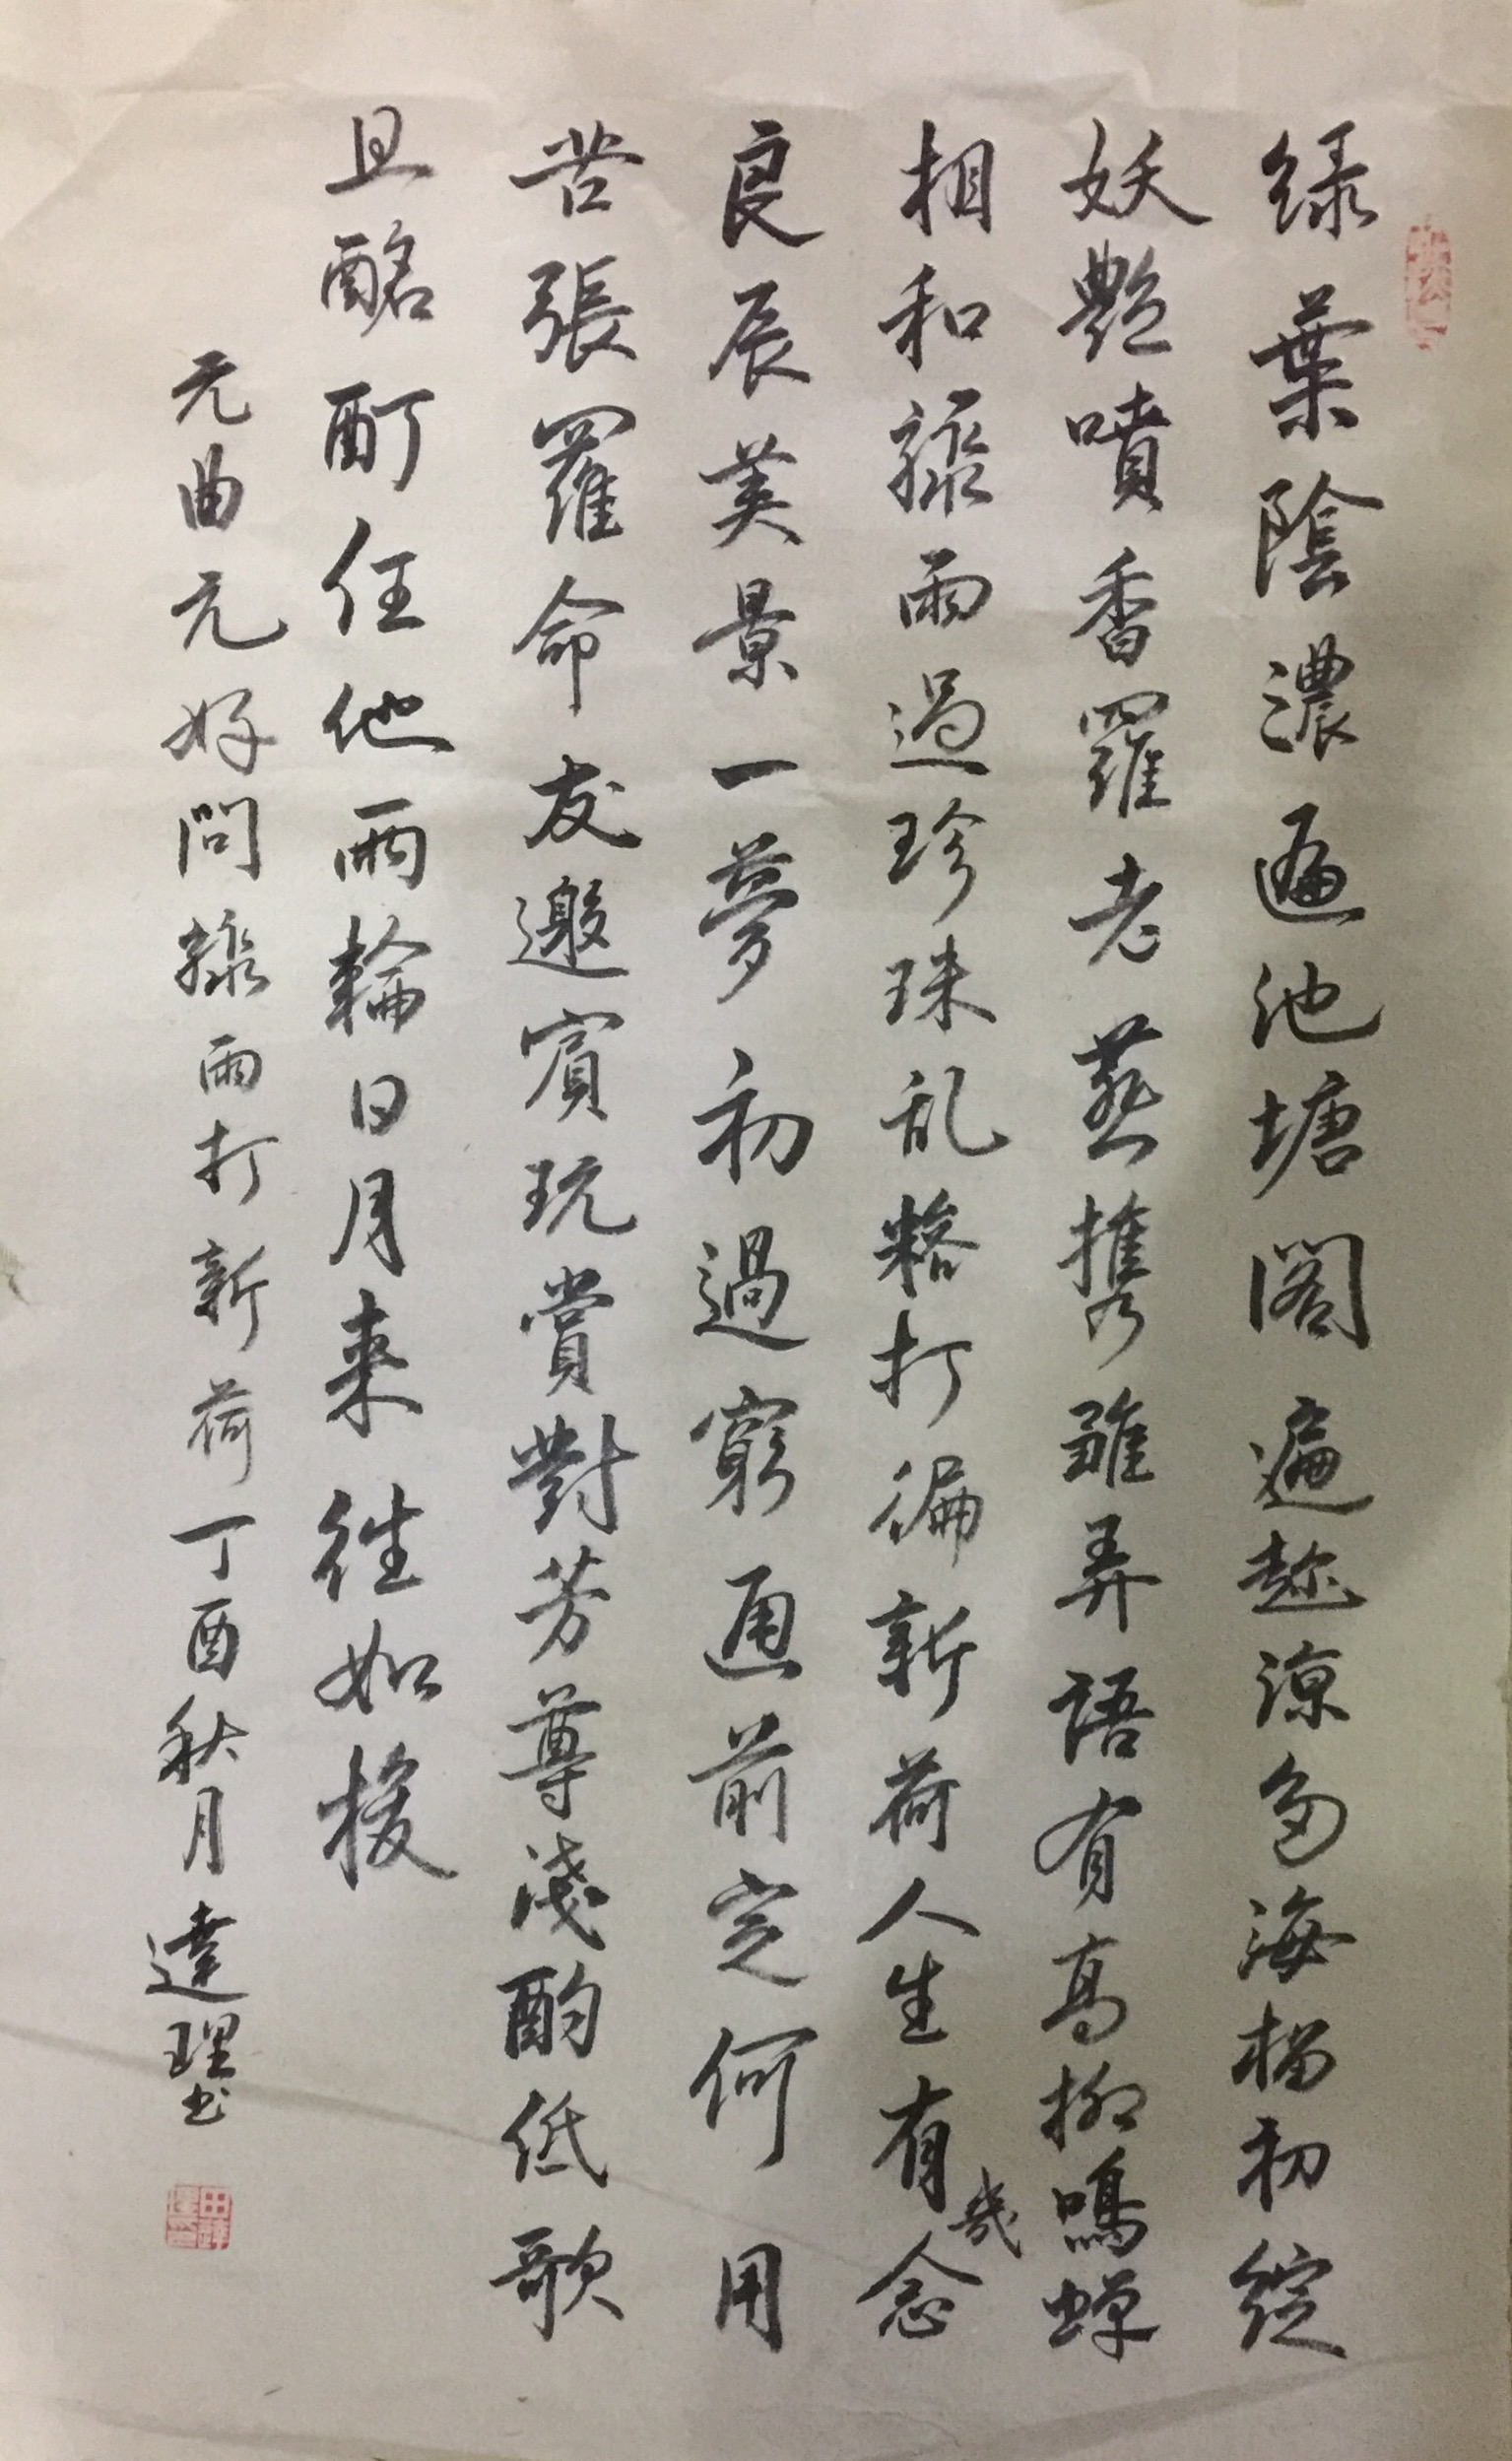 绿葉陰濃遍池塘閣遍趂涼多海榴初綻
妖艷噴香羅老燕携雛弄語有高柳鳴蟬
相和驟雨過珍珠乱糝打徧新荷人生有幾念
良辰美景一夢初過窮通前定何用
苦張羅命友邀賓玩賞對芳尊淺酌低歌
且酩酊任他兩輪日月来往如梭
元曲元好問驟雨打新荷丁酉秋月達理书